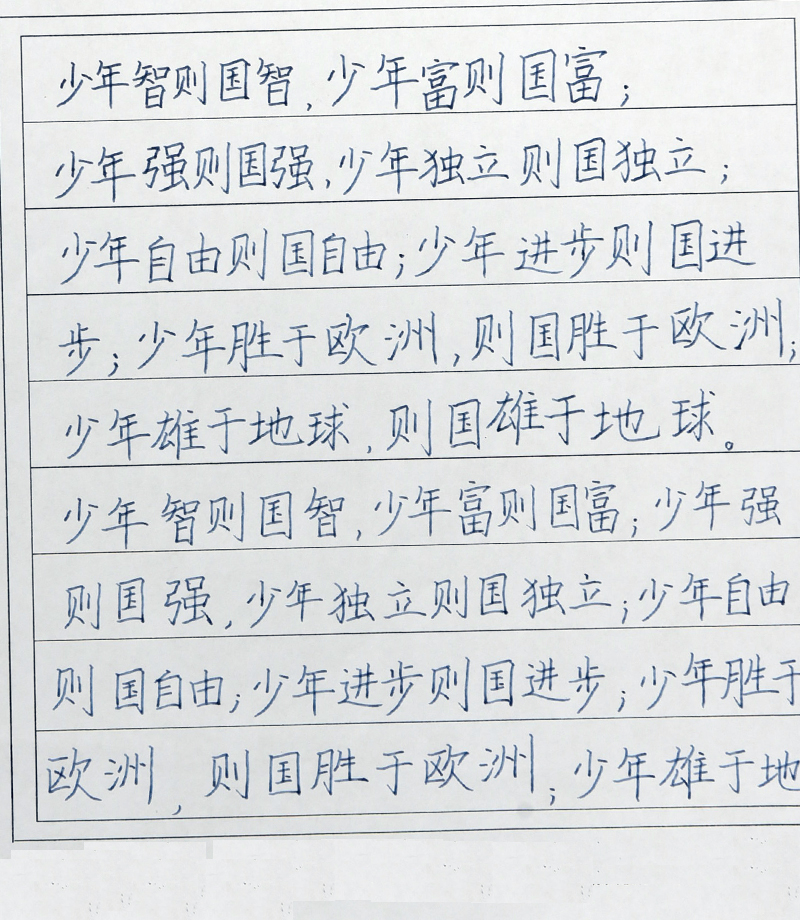 少年智则国智,少年富则国富;
少年强则国强,少年独立则国独立;
少年自由则国自由;少年进步则国进
步;少年胜于欧洲,则国胜于欧洲;
少年雄于地球,则国雄于地球。
少年智则国智,少年富则国富;少年强
则国强,少年独立则国独立;少年自由
则国自由;少年进步则国进步;少年胜于
欧洲,则国胜于欧洲;少年雄于地